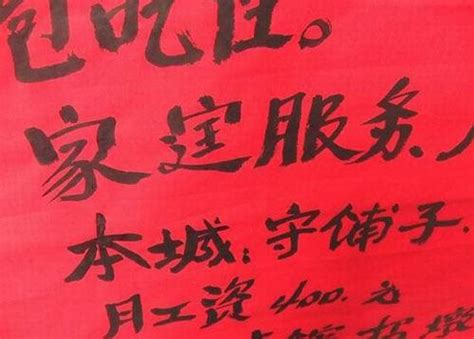 包吃住。
家庭服务
本城:守铺子.
月工资400.元